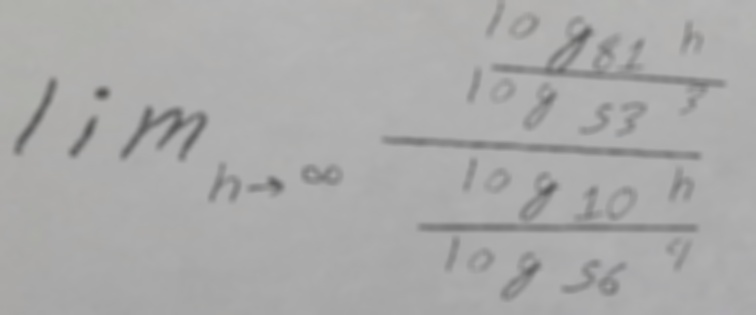 lim h→∞
log 81 h
log 53 3
log 10 h
log 56 4